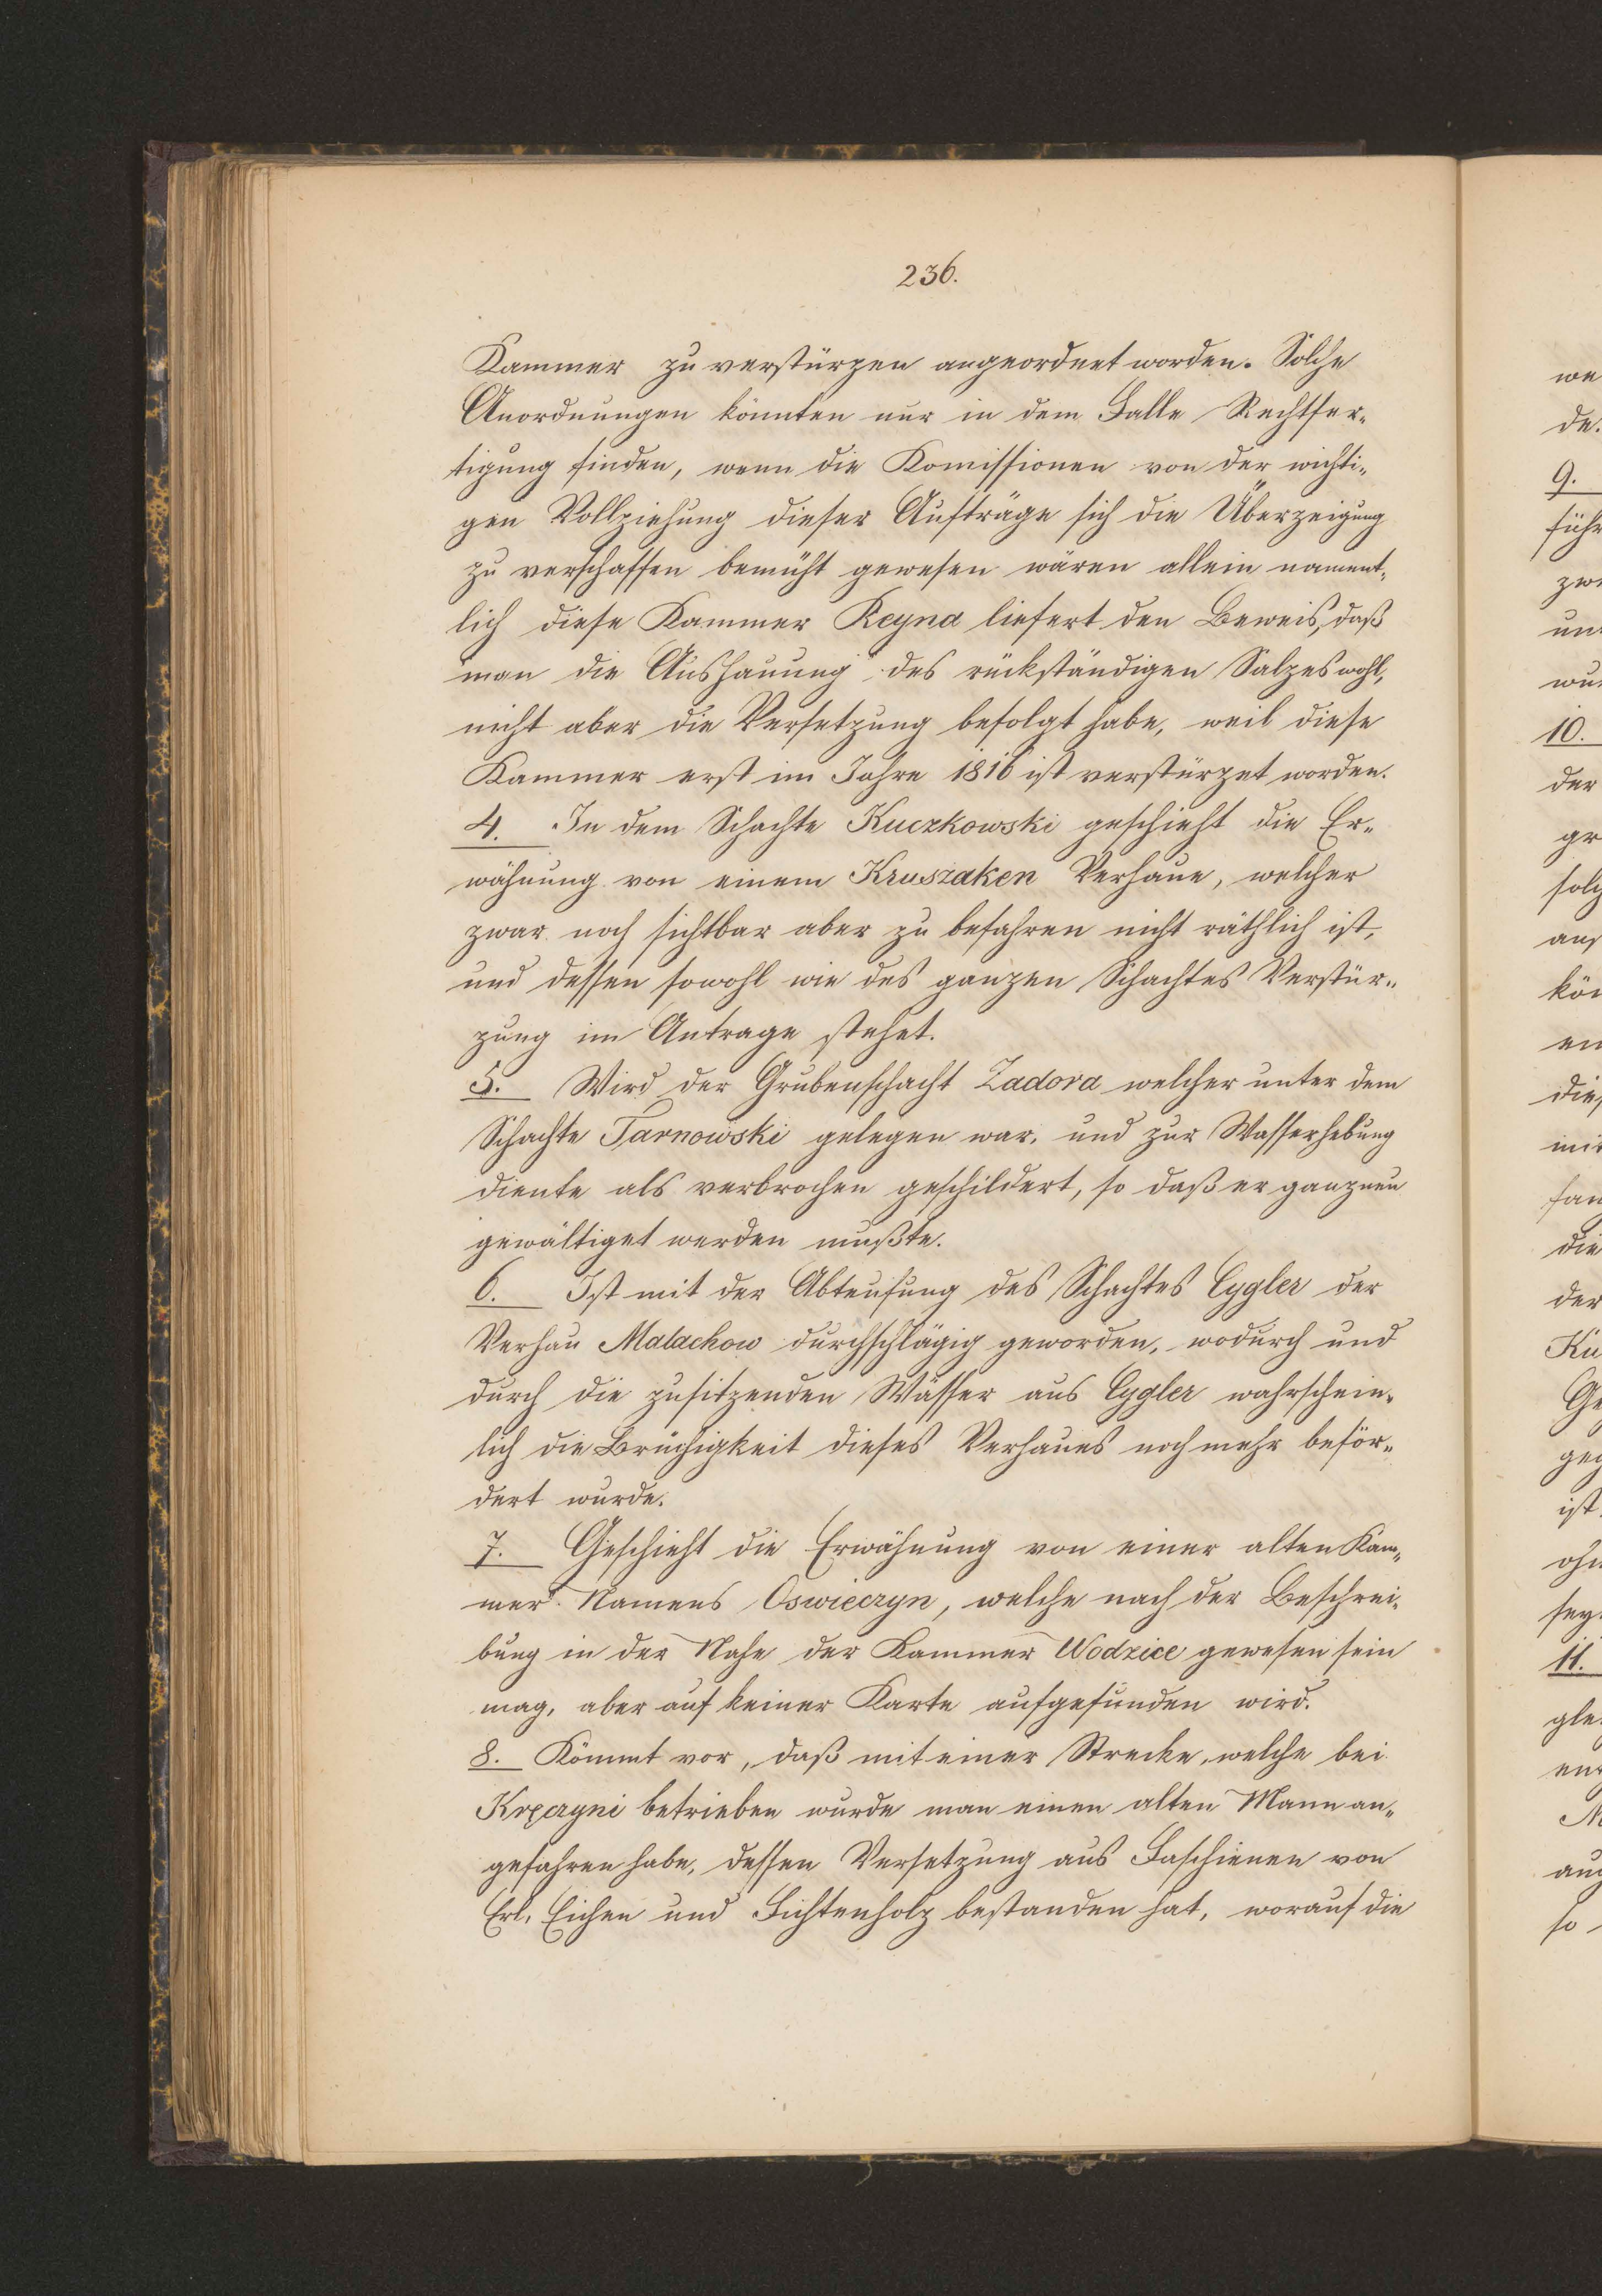 236.
Kammer zu verstürzen angeordnet worden. Solche
Anordnungen könnten nur in dem Falle Rechtfer-
tigung finden, wenn die Komissionen von der wichti-
gen Vollziehung dieser Aufträge sich die Überzeigung
zu verschaffen bemüht gewesen wären allein nament-
lich diese Kammer Reyna liefert den Beweis, daß
man die Aushauung des rückständigen Salzes wohl,
nicht aber die Versetzung befolgt habe, weil diese
Kammer erst im Jahre 1816 ist verstürzet worden.
4. In dem Schachte Kuczkowski geschieht die Er-
wähnung von einem Kruszaken Verhaue, welcher
zwar noch sichtbar aber zu befahren nicht räthlich ist,
und dessen sowohl wie des ganzen Schachtes Verstür-
zung im Antrage stehet.
5. Wird der Grubenschacht Zadora welcher unter dem
Schachte Tarnowski gelegen war, und zur Wasserhebung
diente als verbrochen geschildert, so daß er ganz neu
gewältiget werden mußte.
6. Ist mit der Abteufung des Schachtes Cygler der
Verhau Malachow durchschlägig geworden, wodurch und
durch die zusitzenden Wässer aus Cygler wahrschein-
lich die Brüchigkeit dieses Verhaues noch mehr beför-
dert wurde.
7. Geschieht die Erwähnung von einer alten Kam-
mer Namens Oswieczyn, welche nach der Beschrei-
bung in der Nahe der Kammer Wodzice gewesen sein
mag, aber auf keiner Karte aufgefunden wird.
8. Kömmt vor, daß mit einer Strecke, welche bei
Kręczyni betrieben wurde man einen alten Mann an-
gefahren habe, dessen Versetzung aus Faschienen von
Erl, Eichen und Fichtenholz bestanden hat, worauf die
we
de.
9.
führ
zwe
un
wu
10.
der
gr
solch
aus
kön
en
dies
mit
fan
die
der
Ku
Ge
geg
ist.
ohn
sey
11.
gle
ent
M
auc
so